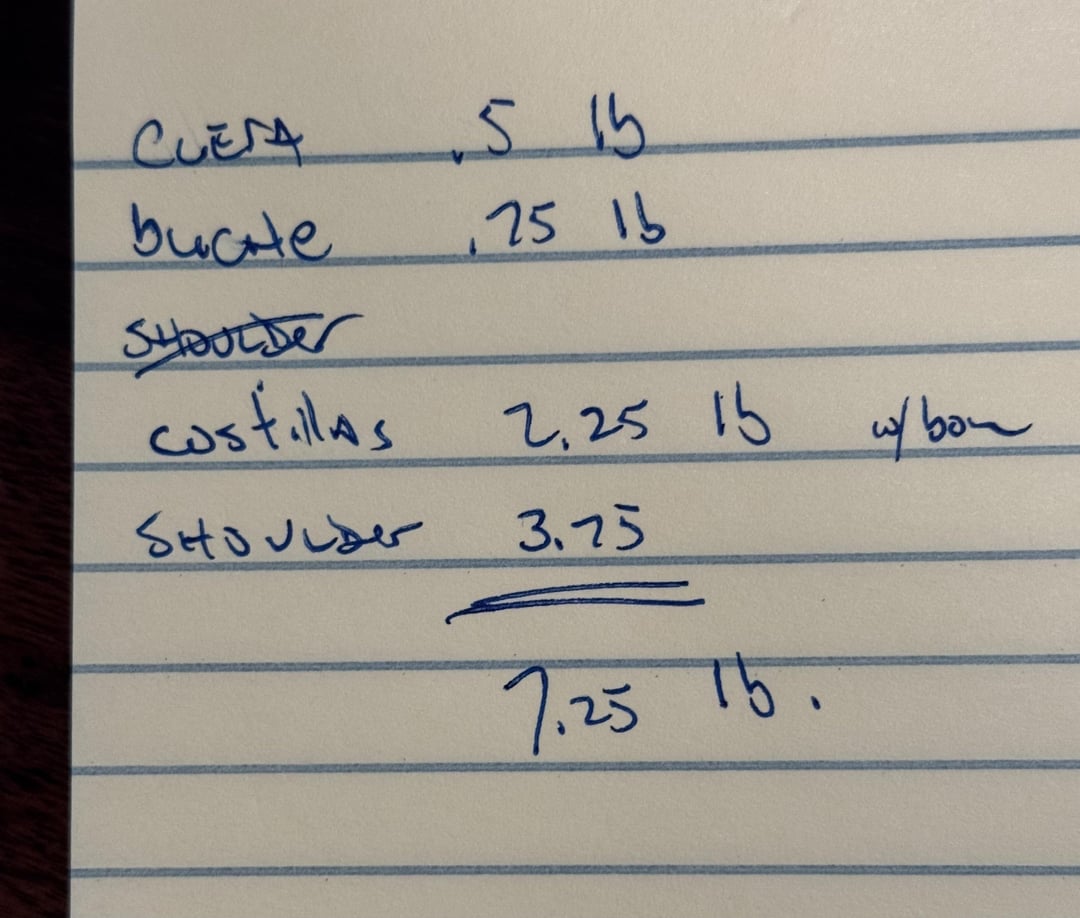 CUERA .5 lb
buche .75 lb
SHOULDer
costillas 2.25 lb w/bone
SHOULDer 3.75
7.25 lb.